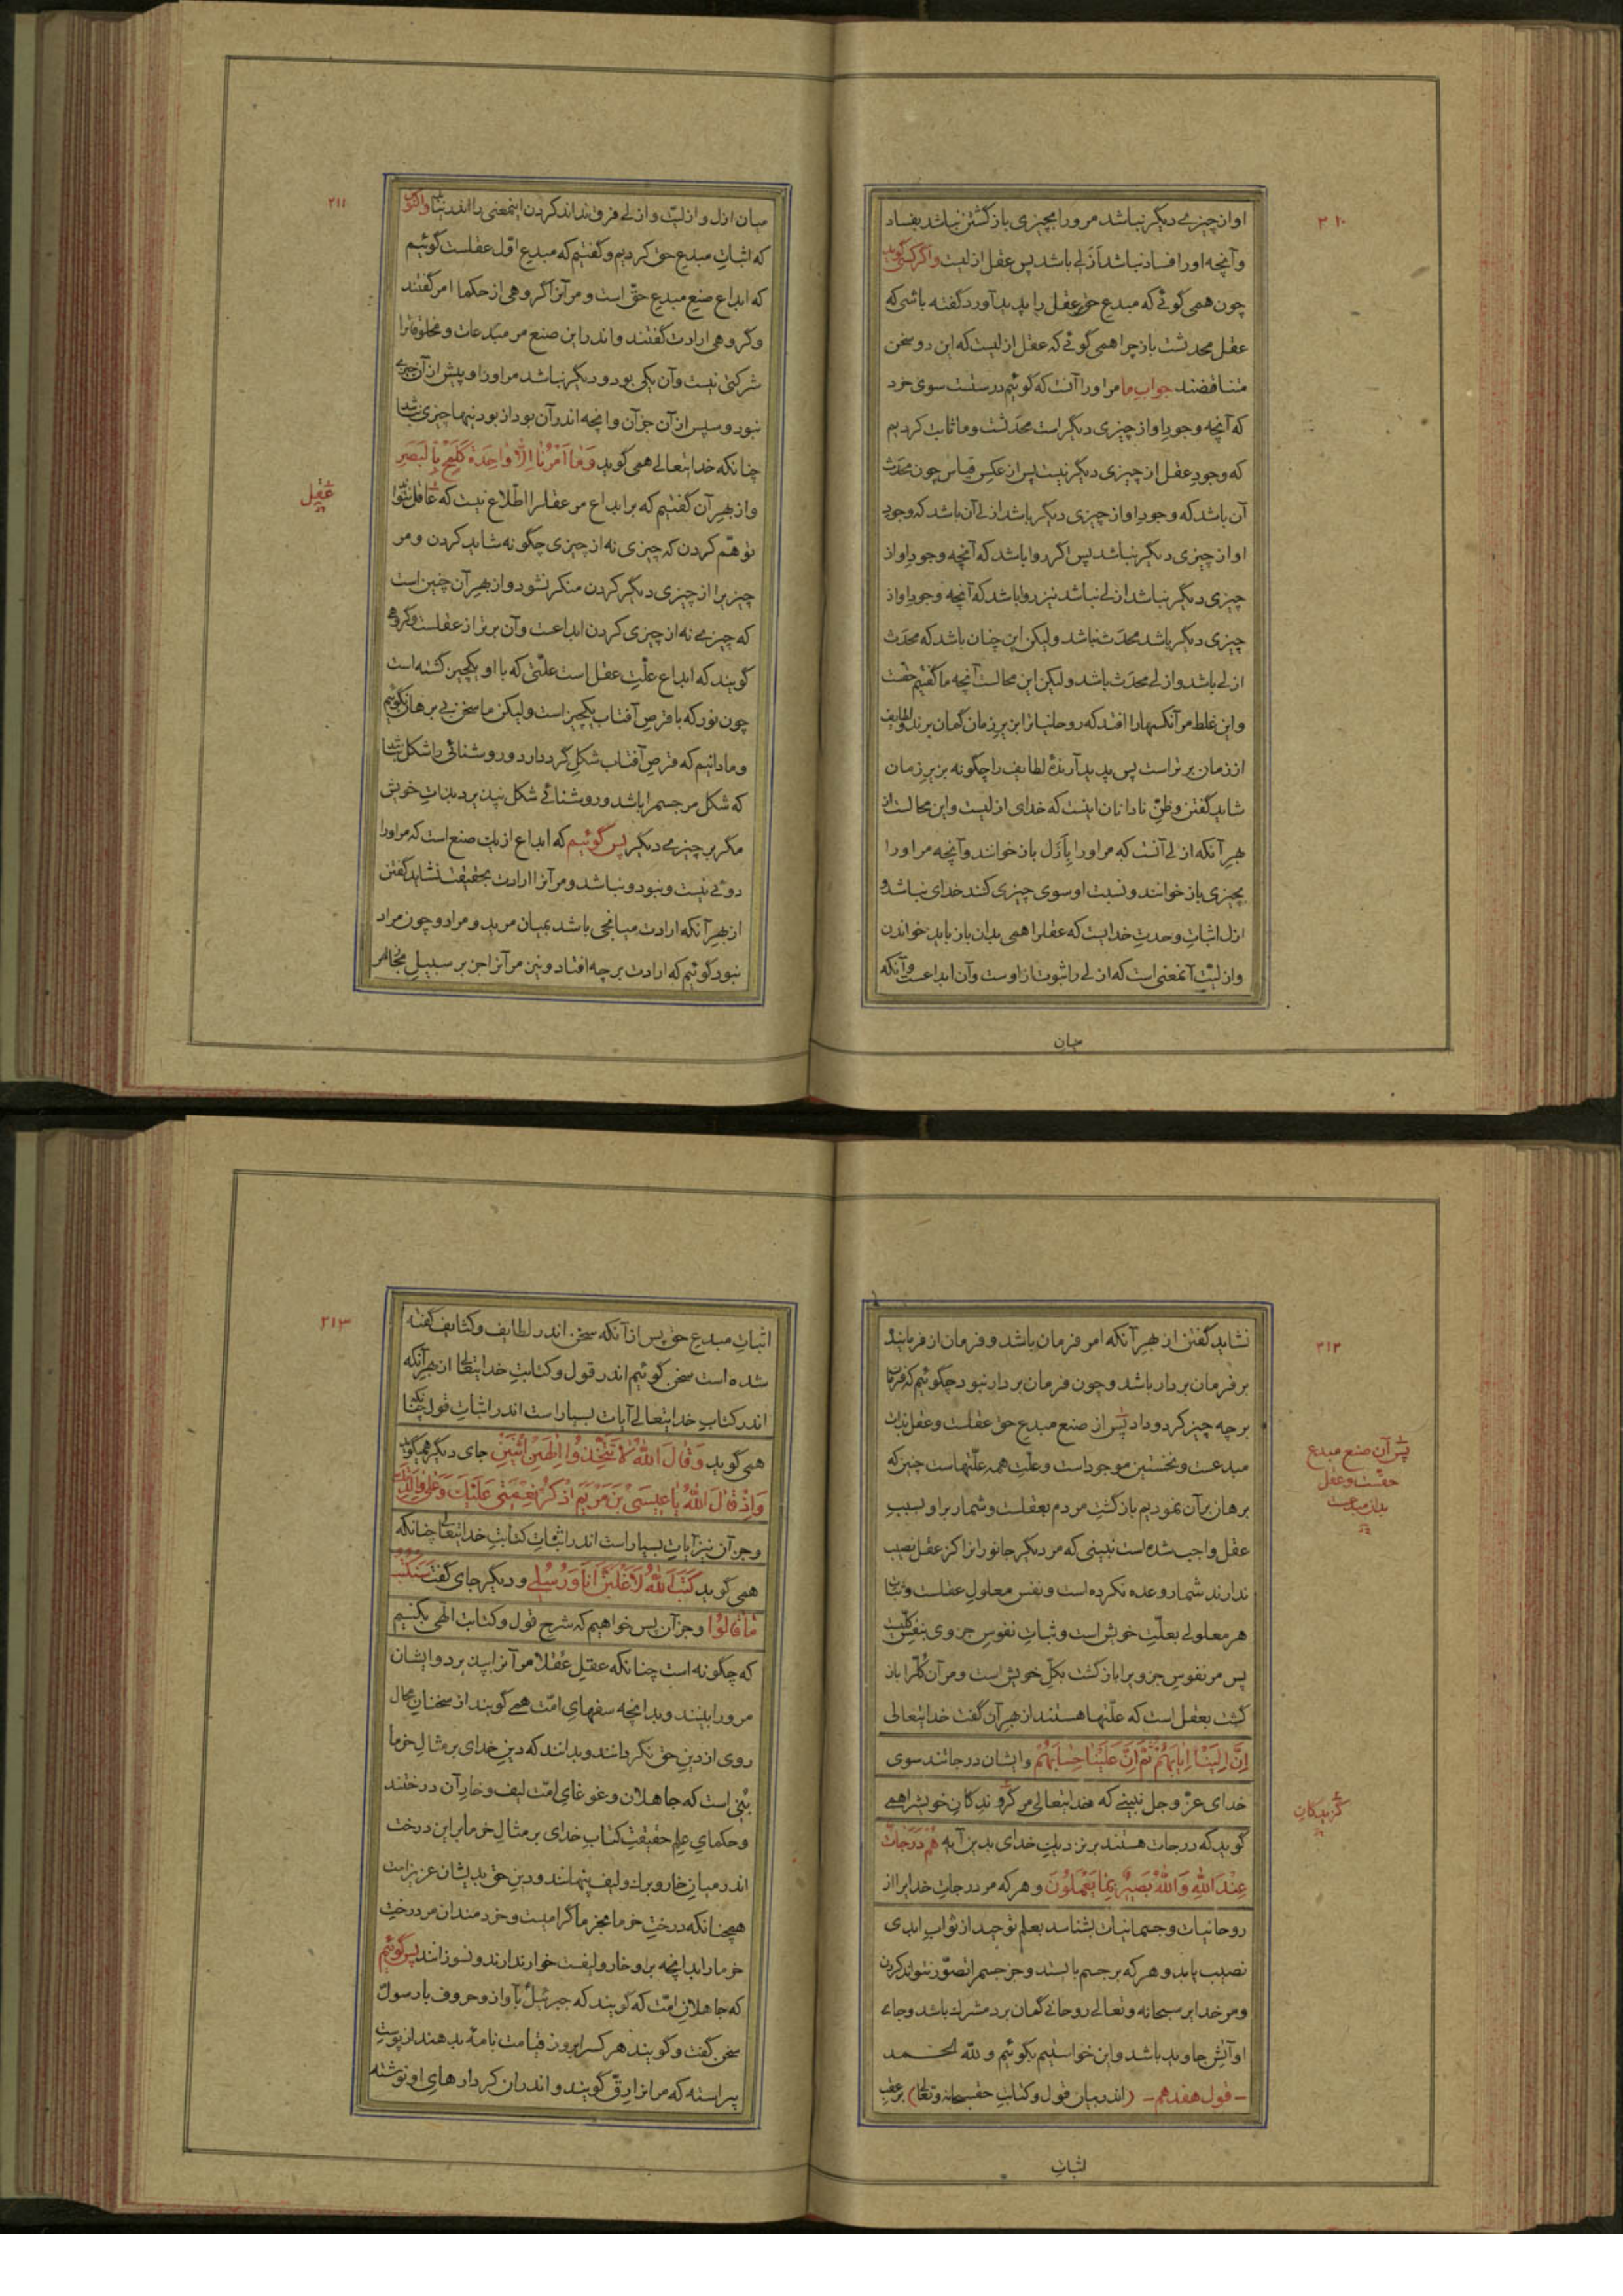 ۲۱۰
او از چیزے دیگر نباشد مر ورا بچیزی باز گشتن نباشد بفساد
وآنچه اورا فساد نباشد ازلے باشد پس عقل ازلیست واگر کسی گوید
چون همی گوئے که مبدع حق عقل را پدید آورد گفته باشی که
عقل محدثست باز چرا همی گوئے که عقل ازلیست که این دو سخن
متناقضند جواب ما مر اورا آنست که گوئیم درستست سوی خرد
که آنچه وجودِ او از چیزی دیگر است محدَثست وما ثابت کردیم
که وجودِ عقل از چیزی دیگر نیست پس از عکسِ قیاس چون محدَث
آن باشد که وجودِ او از چیزی دیگر باشد ازلے آن باشد که وجودِ
او از چیزی دیگر نباشد پس اگر روا باشد که آنچه وجودِ او از
چیزی دیگر نباشد ازلے نباشد نیز روا باشد که آنچه وجودِ او از
چیزی دیگر باشد محدَث نباشد ولیکن این چنان باشد که محدَث
ازلے باشد وازلے محدَث باشد ولیکن این محالست آنچه ما گفتیم حقست
واین غلط مر آنکسها را افتد که روحانیانرا بر زیرِ زمان گمان برند ولطایف
از زمان برتر است پس پدید آرندهٔ لطایف را چگونه بر زیرِ زمان
شاید گفتن وظنِّ نادانان اینست که خدای ازلیست واین محالست از
بهرِ آنکه ازلے آنست که مر اورا بِاَزَل باز خوانند وآنچه مر اورا
بچیزی باز خوانند ونسبت او سوی چیزی کنند خدای نباشد و
ازل اثباتِ وحدتِ خدایست که عقلرا همی بدان باز باید خواندن
وازلیّت آنمعنی است که ازلے را ثبوت از اوست وآن ابداعست وآنکه
میان
۲۱۱
میان ازل وازلیّت وازلے فرق نداند کردن اینمعنی را اندر نیابد واکنون
که اثباتِ مبدعِ حق کردیم وگفتیم که مبدعِ اوّل عقلست گوئیم
که ابداع صنعِ مبدعِ حقّ است ومر آنرا گروهی از حکما امر گفتند
وگروهی ارادت گفتند واندر این صنع مر مبدَعات ومخلوقاترا
شرکتی نیست وآن یکی بود ودیگر نباشد مر اورا و پیش از آن چیزے
نبود وسپس از آن جز آن وانچه اندر آن بود از بودنیها چیزی نباشد
چنانکه خدایتعالے همی گوید وَمَا اَمْرُنٰا اِلّاٰ وٰاحِدَةٌ کَلَمْحٍ بِالْبَصَرِ
واز بهرِ آن گفتیم که بر ابداع مر عقلرا اطّلاع نیست که عاقل نتواند
عقل
توهّم کردن که چیزی نه از چیزی چگونه شاید کردن ومر
چیزیرا از چیزی دیگر کردن منکر نشود واز بهرِ آن چنین است
که چیزے نه از چیزی کردن ابداعست وآن برتر از عقلست وگروهی
گویند که ابداع علّتِ عقل است علّتی که با او یکچیز گشته است
چون نور که با قرصِ آفتاب یکچیز است ولیکن ما سخن بے برهان نگوئیم
وما دانیم که قرصِ آفتاب شکلِ گرد دارد وروشنائی را شکل نباشد
که شکل مر جسم را باشد وروشنائے شکل نپذیرد بذاتِ خویش
مگر بر چیزے دیگر پس گوئیم که ابداع از یک صنع است که مر اورا
دوئے نیست ونبود ونباشد ومر آنرا ارادت بحقیقت نشاید گفتن
از بهرِ آنکه ارادت میانجی باشد بمیان مرید ومراد وچون مراد
نبود گوئیم که ارادت بر چه افتاد ونیز مر آنرا جز بر سبیلِ مجاز امر
۲۱۲
نشاید گفتن از بهرِ آنکه امر فرمان باشد وفرمان از فرماینده
بر فرمان بردار باشد وچون فرمان بردار نبود چگوئیم که فرمان
بر چه چیز کرد وداد پس از صنع مبدعِ حق عقلست وعقل بذات
پس آن صنعِ مبدعِ
حقّست وعقل
بذات مبدعست
مبدعست ونخستین موجود است وعلّتِ همه علّتهاست چنین که
برهان بر آن نمودیم باز گشتِ مردم بعقلست وشمار بر او بسببِ
عقل واجب شده است نبینی که مر دیگر جانورانرا کز عقل نصیب
ندارند شمار وعده نکرده است ونفس معلولِ عقلست وثبات
هر معلولے بعلّتِ خویش است وثباتِ نفوسِ جزوی بنفسِ کلّیست
پس مر نفوسِ جزویرا باز گشت بکلِّ خویش است ومر آن کلّرا باز
گشت بعقل است که علّتها هستند از بهرِ آن گفت خدایتعالی
اِنَّ اِلَیْنٰا اِیٰابَهُمْ ثُمَّ اِنَّ عَلَیْنٰا حِسٰابَهُمْ وایشان درجاتند سوی
خدای عزّ وجل نبینے که خدایتعالی مر گروندگانِ خویشرا همی
گزیدگان
گوید که درجات هستند بر نزدیکِ خدای بدین آیه هُمْ دَرَجٰاتٌ
عِنْدَ اللّٰهِ وَاللّٰهُ بَصیرٌ بِمٰا یَعْمَلُونَ وهر که مر درجاتِ خدایرا از
روحانیات وجسمانیات بشناسد بعلمِ توحید از ثوابِ ابدی
نصیب یابد وهر که بر جسم بایستد وجز جسم را تصوّر نتواند کردن
ومر خدایرا سبحانه وتعالے روحانے گمان برد مشرك باشد وجاے
او آتشِ جاوید باشد واین خواستیم بگوئیم وللّٰه الحمد
- قول هفدهم - (اندر بیان قول وکتابِ حق سبحانه وتعالی) بر عقبِ
اثباتِ
۲۱۳
اثباتِ مبدعِ حق پس از آنکه سخن اندر لطایف وکثایف گفته
شده است سخن گوئیم اندر قول وکتابتِ خدایتعالی از بهرِ آنکه
اندر کتابِ خدایتعالے آیات بسیار است اندر اثباتِ قول چنانکه
همی گوید وَقٰالَ اللّٰهُ لٰا تَتَّخِذُوا اِلٰهَیْنِ اثْنَیْنِ جای دیگر همیگوید
وَاِذْ قٰالَ اللّٰهُ یٰا عیسَی بْنَ مَرْیَمَ اذْکُرْ نِعْمَتی عَلَیْكَ وَعَلیٰ وٰالِدَتِكَ
وجز آن نیز آیات بسیار است اندر اثباتِ کتابتِ خدایتعالی چنانکه
همی گوید کَتَبَ اللّٰهُ لَاَغْلِبَنَّ اَنَا وَرُسُلی ودیگر جای گفت سَنَکْتُبُ
مٰا قٰالُوا وجز آن پس خواهیم که شرحِ قول وکتابت الهی بکنیم
که چگونه است چنانکه عقلِ عُقلا مر آنرا بپذیرد وایشان
مر ورا ببینند وبدانچه سفهایِ امّت همے گویند از سخنانِ محال
روی از دینِ حق نگردانند وبدانند که دینِ خدای بر مثالِ خرما
بُنی است که جاهلان وغوغایِ امّت لیف وخارِ آن درختند
وحکمایِ علمِ حقیقتِ کتابِ خدای بر مثالِ خرما بر این درخت
اندر میان خار وبرگ ولیف پنهانند ودینِ حق بدیشان عزیز است
همچنانکه درختِ خرما بخرما گرامیست وخردمندان مر درختِ
خرما را بدانچه بر او خار ولیفست خوار ندارند ونسوزانند پس گوئیم
که جاهلانِ امّت که گویند که جبرئیل بآواز وحروف با رسول
سخن گفت وگویند هر کسرا بروزِ قیامت نامهٔ بدهند از پوستِ
پیراسته که مر آنرا رقّ گویند واندر آن کردارهایِ او نوشته